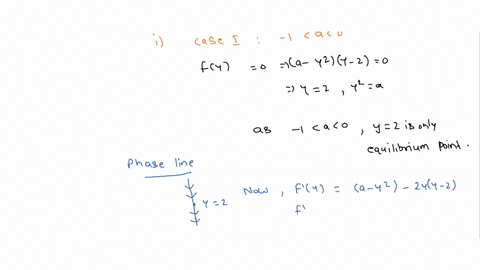 i) case I : -1 < a < 0
f(y) = 0 ⇒ (a - y²)(y-2) = 0
⇒ y = 2 , y² = a
as -1 < a < 0 , y = 2 is only
equilibrium point.
Phase line
y = 2
Now , f'(y) = (a-y²) - 2y(y-2)
f'